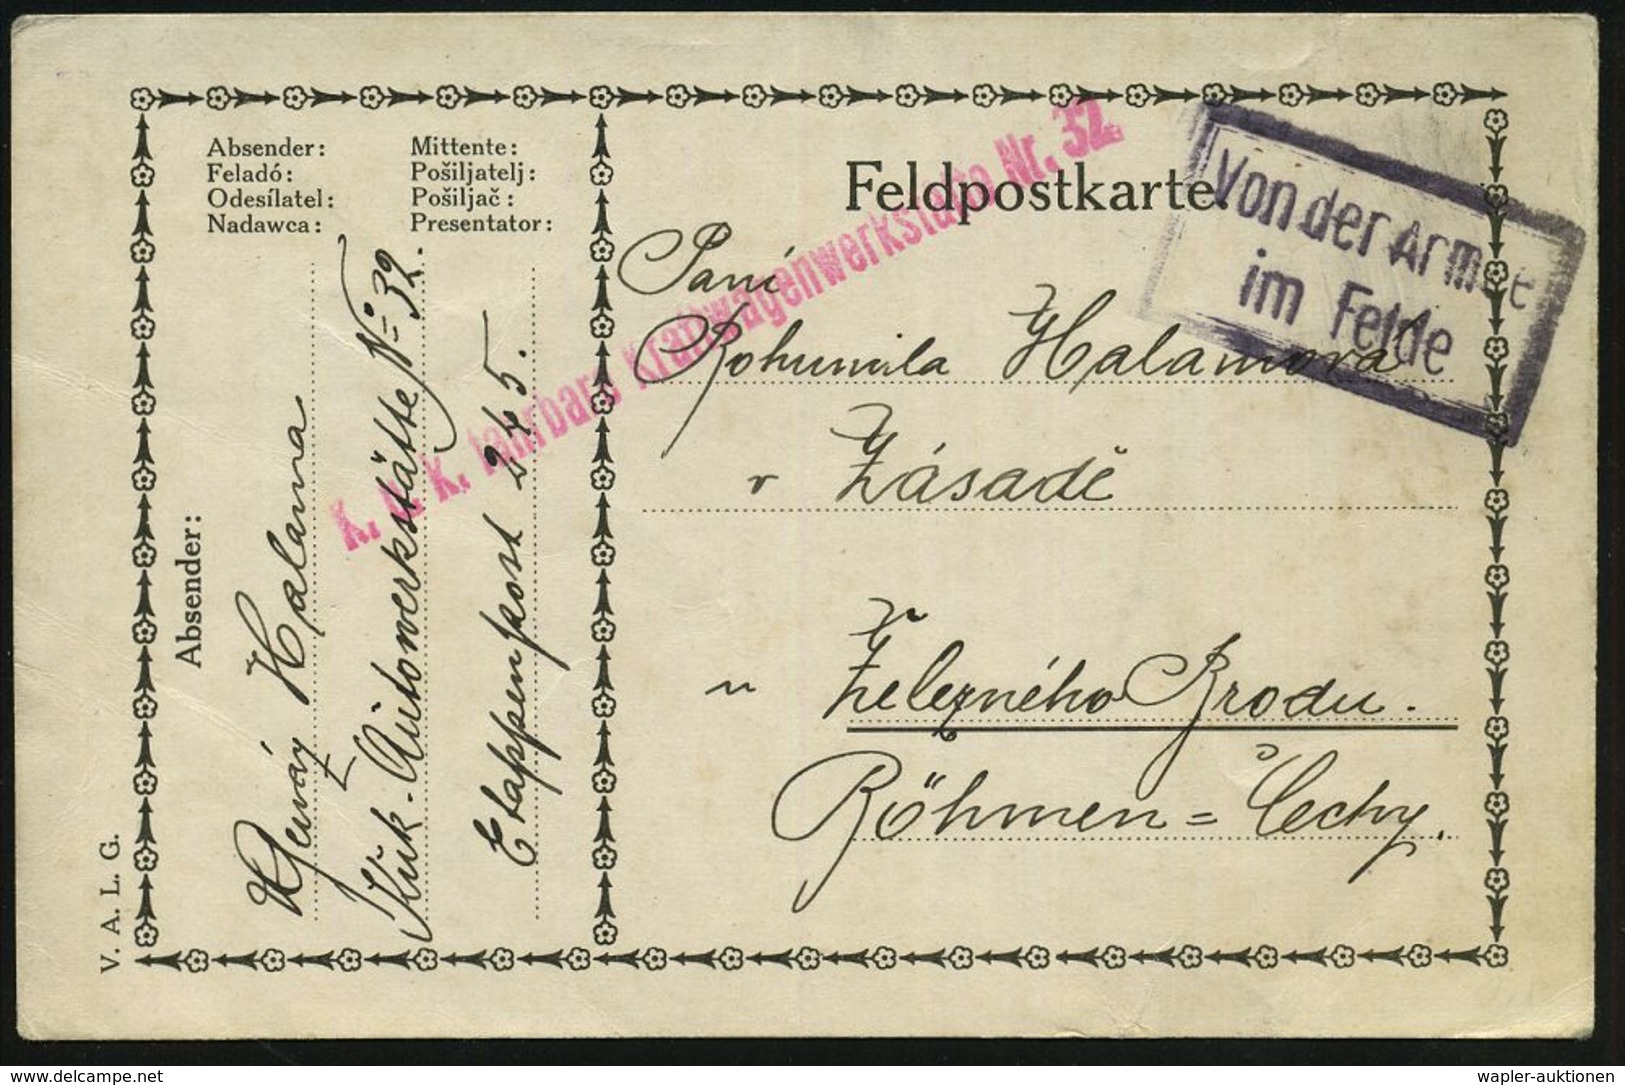 Absender: Mittente:
Feladó: Pošiljatelj:
Odesílatel: Pošiljač:
Nadawca: Presentator:
Absender:
Halama
Kuk. Autowerkstätte No 32.
Etappenpost 245.
V. A. L. G.
K. u. K. fahrbare Kraftwagenwerkstätte Nr. 32
Feldpostkarte.
Von der Armee
im Felde
Paní
Bohumila Halamová
v Zásadě
u Železného Brodu.
Böhmen = Čechy.
delcampe.net
wapler-auktionen